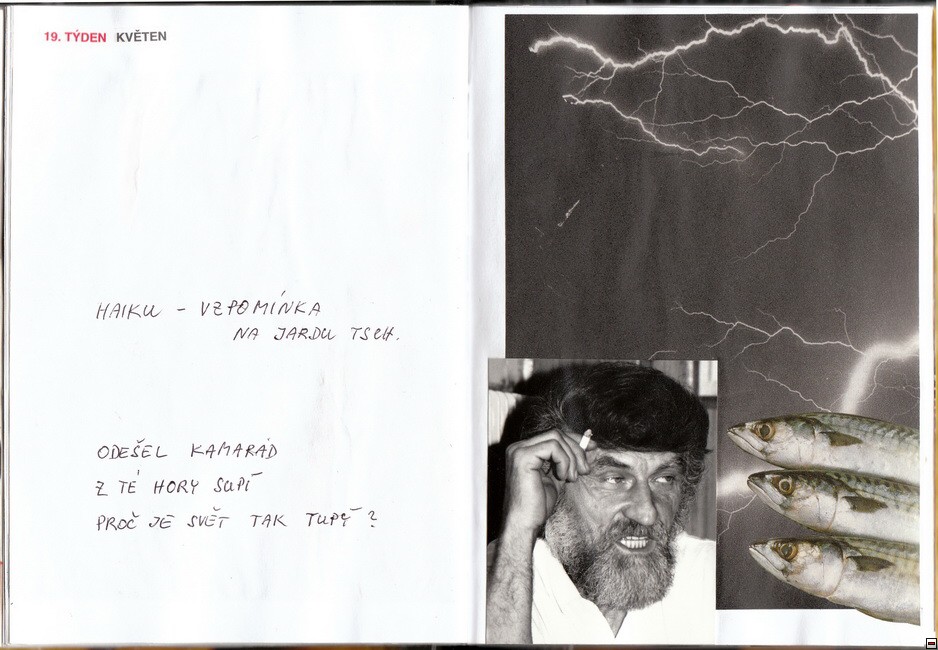 19. TÝDEN KVĚTEN
HAIKU - VZPOMÍNKA
NA JARDU TSCH.
ODEŠEL KAMARÁD
Z TÉ HORY SUPÍ
PROČ JE SVĚT TAK TUPÝ ?